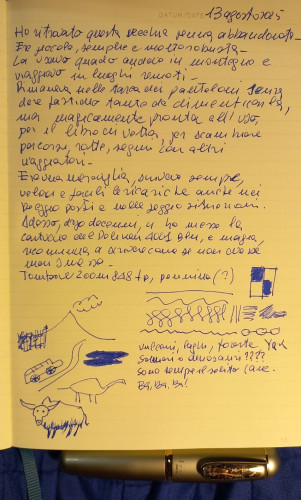 13 agosto 2025
Ho ritrovato questa vecchia penna abbandonata.
Era piccola, semplice e molto robusta.
La usavo quando andavo in montagna e
viaggiavo in luoghi remoti.
Rimaneva nelle tasca dei pantaloni senza
dare fastidio tanto da dimenticarla,
ma magicamente pronta all'uso,
per il libro di vetta, per scambiare
percorsi, rotte, segni con altri
viaggiatori.
Era una meraviglia, scriveva sempre,
veloce e facile la ricarica anche nei
peggio posti e nelle peggio situazioni.
Adesso, dopo decenni, ci ho messo la
cartuccia del
ricomincia a scrivere come se non
non
Tombow Zoom 828 fp, pennino (?)
vulcani, laghi, foreste, Yak
Salmoni o dinosauri ????
Sono sempre il solito cane.
Ba, Ba, Ba!